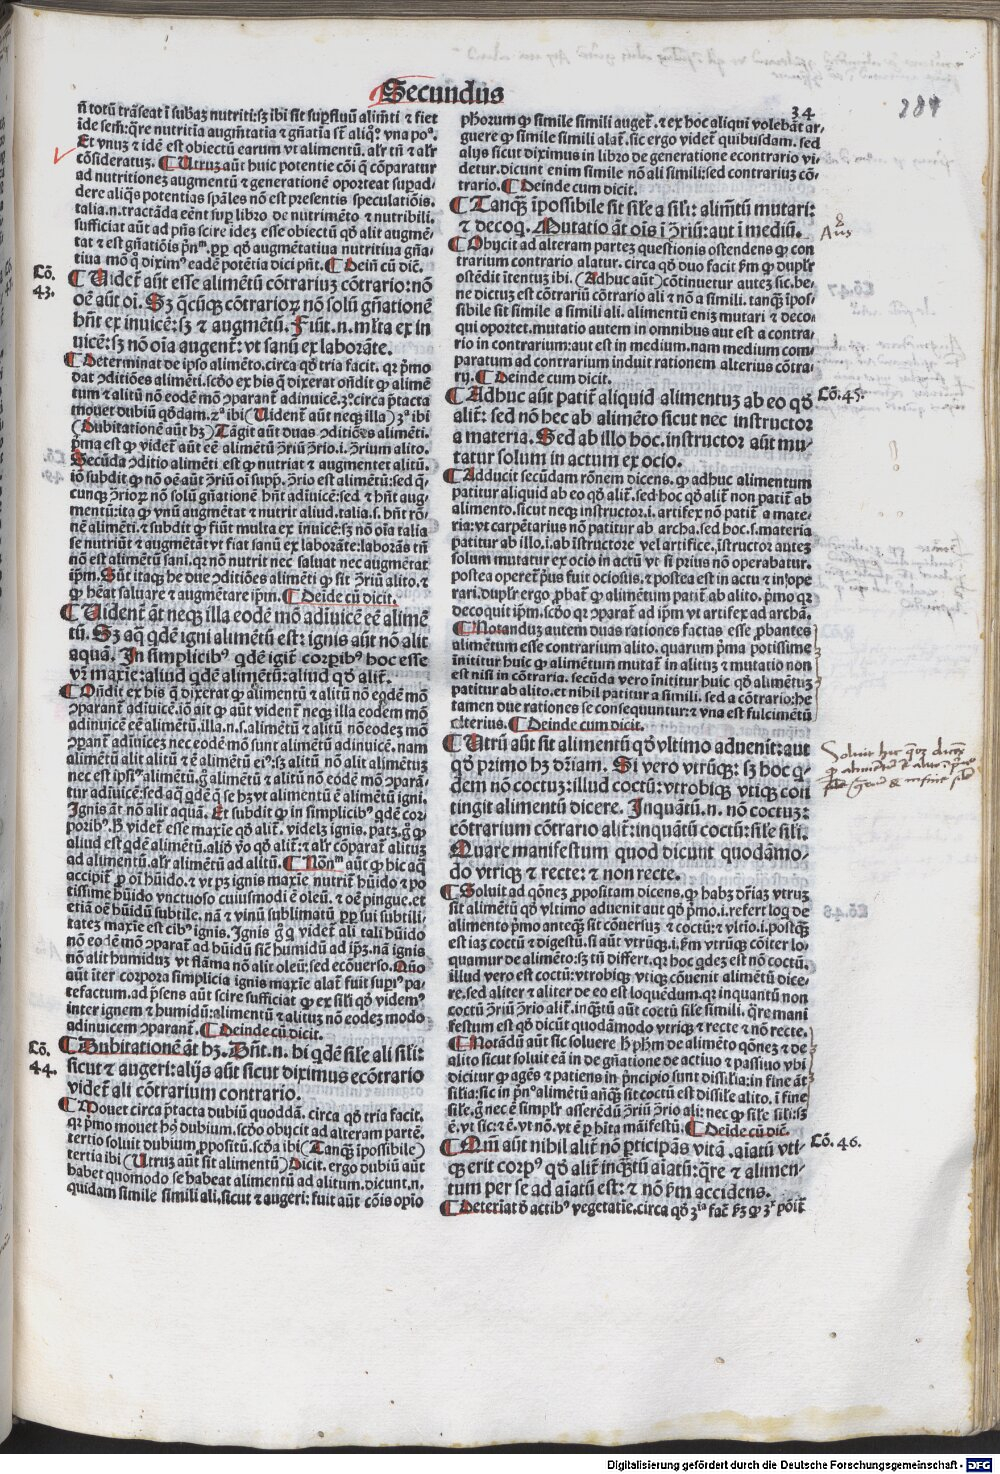 Secundus
34
284
n̄ totū trāseat ī subāꝫ nutriti:sꝫ ibi sit suꝑfluū alimēti ⁊ fiet
ide sem̄:q̄re nutritīa augm̄tatīa ⁊ gn̄atīa st̄ aliqͦ° vna poª.
Et vnuꝫ ⁊ idē est obiectū earum vt alimentū. alr̄ tn̄ ⁊ alr̄
cōsideratuꝫ. ¶ Utruꝫ aūt huic potentie cōi q̄ cōparatur
ad nutritionez augmentū ⁊ generationē oporteat supad
dere aliq̄s potentias spāles nō est presentis speculatiōis.
talia.n.tractāda eēnt suꝑ libro de nutrimēto ⁊ nutribili.
sufficiat aūt ad pn̄s scire idez esse obiectū qd̄ alit augmē
tat ⁊ est gn̄atiōis pn̄ᵐ. ꝑp qd̄ augmētatiua nutritiua gn̄a
tiua mō q̄ diximꝰ eadē potētia dici pn̄t. ¶ Dein̄ cū dic̄.
Cō.
43.
¶ Uidet᷑ aūt esse alimētū cōtrariuꝫ cōtrario: nō
oē aūt oī. Sꝫ q̄cūqꝫ cōtrarioꝝ nō solū gn̄ationē
hn̄t ex inuicē:sꝫ ⁊ augmētū. Fiūt.n.ml̄ta ex in
uicē:sꝫ nō oīa augent᷑: vt sanū ex laborāte.
¶ Determinat de ipso alimēto.circa qd̄ tria facit. qꝛ p̄mo
dat ꝯditiōes alimēti. scd̄o ex his q̄ dixerat ostēdit ꝙ alimē
tum ⁊ alitū nō eodē mō ꝯparant᷑ adinuicē.3ͦ.circa p̄tacta
mouet dubiū qd̄dam. 2ª ibi (Uident᷑ aūt neqꝫ illa) 3ª ibi
(Dubitationē aūt hꝫ) Tāgit aūt duas ꝯditiōes alimēti.
p̄ma est ꝙ videt᷑ aūt eē alimētū ꝯriū ꝯrio.i. ꝯrium alito.
Secūda ꝯditio alimēti est ꝙ nutriat ⁊ augmentet alitū.
iō subdit ꝙ nō oē aūt ꝯriū oī supp. ꝯrio est alimētū:sed q̄
cunqꝫ ꝯrioꝝ nō solū gn̄ationē hn̄t adinuicē:sed ⁊ hn̄t aug
mentū:ita ꝙ vnū augmētat ⁊ nutrit aliud.talia.s. hn̄t rō
nē alimēti.⁊ subdit ꝙ fiūt multa ex inuicē:sꝫ nō oīa talia
se nutriūt ⁊ augmētāt vt fiat sanū ex laborāte:laborās tn̄
nō est alimētū sani.qꝛ nō nutrit nec saluat nec augmētat
ip̄m. Sūt itaqꝫ he due ꝯditiōes alimēti ꝙ sit ꝯriū alito.⁊
ꝙ hēat saluare ⁊ augmētare ip̄m. ¶ Deīde cū dicit.
¶ Uident᷑ āt neqꝫ illa eodē mō adiuicē eē alimē
tū. Sꝫ aq̄ qdē igni alimētū est: ignis aūt nō alit
aquā. In simplicibꝰ qdē igit᷑ corꝑibꝰ hoc esse
vr̄ maxīe: aliud qdē alimētū:aliud qd̄ alit᷑.
¶ Oñdit ex his q̄ dixerat ꝙ alimentū ⁊ alitū nō eodē mō
ꝯparant᷑ adiuicē.iō ait ꝙ aūt vident᷑ neqꝫ illa eodem mō
adinuicē eē alimētū.illa.n.s.alimētū ⁊ alitū nō eodez mō
ꝯparant᷑ adiuicez nec eodē mō sunt alimētū adinuicē. nam
alimētū alit alitū ⁊ ē alimētū eiꝰ:sꝫ alitū nō alit alimētuꝫ
nec est ipsiꝰ alimētū.ḡ alimētū ⁊ alitū nō eodē mō ꝯparā
tur adiuicē:sed aq̄ qdē q̄ se hꝫ vt alimentū ē alimētū igni.
Ignis āt nō alit aquā. Et subdit ꝙ in simplicibꝰ qdē cor
poribꝰ.hͦ videt᷑ esse maxīe qd̄ alit᷑. videlꝫ ignis. patꝫ.ḡ ꝙ
aliud est qdē alimētū.aliō v̄o qd̄ alit᷑:⁊ alr̄ cōparat᷑ alituꝫ
ad alimentū.alr̄ alimētū ad alitū. ¶ Nōnᵐ aūt ꝙ hic aq̄
accipit᷑ ꝑ oī hūido.⁊ vt pꝫ ignis maxīe nutrit᷑ hūido ⁊ po
tissime hūido vnctuoso cuiusmodi ē oleū. ⁊ oē pingue.et
etiā oē hūidū subtile. nā ⁊ vinū sublimatū ꝑp sui subtili
tateꝫ maxīe est cibꝰ ignis. Ignis ḡ q̄ videt᷑ ali tali hūido
nō eodē mō ꝯparat᷑ ad hūidū siē humidū ad ip̄ꝫ. nā ignis
nō alit humiduꝫ vt flāma nō alit oleū:sed ecōuerso. Quō
aūt iter corpora simplicia ignis maxīe alat᷑ fuit supͥꝰ pa
tefactum.ad p̄sens aūt scire sufficiat ꝙ ex sil̄i qd̄ videmꝰ
inter ignem ⁊ humidū:alimentū ⁊ alituꝫ nō eodeꝫ modo
adinuicem ꝯparant᷑. ¶ Deinde cū dicit.
Cō.
44.
¶ Dubitationē āt hꝫ. Dn̄t.n. hi qdē sile ali sili:
sicut ⁊ augeri:alijs aūt sicut diximus ecōtrario
videt᷑ ali cōtrarium contrario.
¶ Mouet circa p̄tacta dubiū quoddā. circa qd̄ tria facit.
qꝛ p̄mo mouet hͦꝰ dubium.scd̄o obijcit ad alteram partē.
tertio soluit dubium ꝓpositū.scd̄a ibi (Tanqꝫ īpossibile)
tertia ibi (Utruꝫ aūt sit alimentū) Dicit. ergo dubiū aūt
habet quomodo se habeat alimentū ad alitum. dicunt.n.
quidam simile simili ali.sicut ⁊ augeri: fuit aūt cōis opīo
pħorum ꝙ simile simili auget᷑.⁊ ex hoc aliqui volebāt ar
guere ꝙ simile simili alat᷑.sic ergo videt᷑ quibusdam. sed
alijs sicut diximus in libro de generatione econtrario vi
detur.dicunt enim simile nō ali simili:sed contrariuꝫ cō
trario. ¶ Deinde cum dicit.
¶ Tanqꝫ īpossibile sit sile a sili: alimētū mutari:
⁊ decoq. Mutatio āt oīs ī ꝯriū:aut ī mediū.
¶ Obijcit ad alteram parteꝫ questionis ostendens ꝙ con
trarium contrario alatur. circa qd̄ duo facit km̄ ꝙ dupl̄r
ostēdit ītentuꝫ ibi. (Adhuc aūt) cōtinuetur auteꝫ sic.be
ne dictuꝫ est cōtrariū cōtrario ali ⁊ nō a simili. tanqꝫ īpos
sibile sit simile a simili ali. alimentū enim mutari ⁊ deco
qui oportet.mutatio autem in omnibus aut est a contra
rio in contrarium:aut est in medium.nam medium com
paratum ad contrarium induit rationem alterius cōtra
rij. ¶ Deinde cum dicit.
Cō.45.
¶ Adhuc aūt patit᷑ aliquid alimentuꝫ ab eo qd̄
alit᷑: sed nō hec ab alimēto sicut nec instructor
a materia. Sed ab illo hoc.instructor aūt mu
tatur solum in actum ex ocio.
¶ Adducit secūdam rōnem dicens. ꝙ adhuc alimentum
patitur aliquid ab eo qd̄ alit᷑.sed hoc qd̄ alit᷑ non patit᷑ ab
alimento.sicut neqꝫ instructor.i. artifex nō patit᷑ a mate
ria:vt carpētarius nō patitur ab archa.sed hoc.s.materia
patitur ab illo.i.ab īstructore vel artifice.īstructor auteꝫ
solum mutatur ex ocio in actū vt si prius nō operabatur.
postea operet᷑ p̄us fuit ociosus.⁊ postea est in actu ⁊ in ope
rari.dupl̄r ergo ꝓbat᷑ ꝙ alimētum patit᷑ ab alito.p̄mo qꝛ
decoquit ip̄m.scd̄o qꝛ ꝯparat᷑ ad ip̄m vt artifex ad archā.
¶ Notanduꝫ autem duas rationes factas esse ꝓbantes
alimētum esse contrarium alito. quarum p̄ma potissime
īnititur huic ꝙ alimētum mutat᷑ in alituꝫ ⁊ mutatio non
est nisi in cōtraria. secūda vero īnititur huic qd̄ alimētuꝫ
patitur ab alito.et nihil patitur a simili. sed a cōtrario:he
tamen due rationes se consequuntur:⁊ vna est fulcimētū
alterius. ¶ Deinde cum dicit.
¶ Utrū aūt sit alimentū qd̄ vltimo aduenit:aut
qd̄ primo hꝫ dr̄iam. Si vero vtrūqꝫ: sꝫ hoc q
dem nō coctuꝫ:illud coctū:vtrobiqꝫ vtiqꝫ con
tingit alimentū dicere. Inquātū.n. nō coctuꝫ:
cōtrarium cōtrario alit᷑:inquātū coctū:sile sili.
Quare manifestum quod dicunt quodāmo
do vtriqꝫ ⁊ recte: ⁊ non recte.
¶ Soluit ad qōneꝫ ꝓpositam dicens.ꝙ habꝫ dr̄iaꝫ vtruꝫ
sit alimētū qd̄ vltimo aduenit aut qd̄ p̄mo.i.refert loq̄ de
alimento p̄mo anteqꝫ sit cōuersuꝫ ⁊ coctū:⁊ vltīo.i.postqꝫ
est iaꝫ coctū ⁊ digestū.si aūt vtrūqꝫ.i.km̄ vtrūqꝫ cōiter lo
quamur de alimēto:sꝫ tn̄ differt.qꝛ hoc qdeꝫ est nō coctū.
illud vero est coctū:vtrobiqꝫ vtiqꝫ cōuenit alimētū dice
re.sed aliter ⁊ aliter de eo est loquēdum.qꝛ inquantū non
coctū ꝯriū ꝯrio alit᷑.inqꝫtū aūt coctū sile simili. q̄re mani
festum est qd̄ dicūt quodāmodo vtriqꝫ ⁊ recte ⁊ nō recte.
¶ Notādū aūt sic soluere hͦ pħm de alimēto qōneꝫ ⁊ de
alito sicut soluit eā in de gn̄atione de actiuo ⁊ passiuo vbi
dicitur ꝙ agēs ⁊ patiens in p̄ncipio sunt dissilia:in fine āt
silia:sic in pn̄° alimētū añqꝫ sit coctū est dissile alito. ī fine
sile.ḡ nec ē simpl̄r asserēdū ꝯriū ꝯrio ali: nec ꝙ sile sili:sꝫ
ē.vt sic:⁊ ē.vt nō.vt ē ꝑ hīta māifestū. ¶ Deīde cū dic̄.
Cō.46.
¶ Qm̄ aūt nihil alit᷑ nō ꝑticipās vitā .aīatū vti
qꝫ erit corpꝰ qd̄ alit᷑ inqꝫtū aīatū:q̄re ⁊ alimen
tum per se ad aīatū est:⁊ nō km̄ accidens.
¶ Deteriat᷑ ō actibꝰ vegetatīe.circa qd̄ 3ª fac̄ km̄ ꝙ 3ͬ pōit᷑
Digitalisierung gefördert durch die Deutsche Forschungsgemeinschaft - DFG